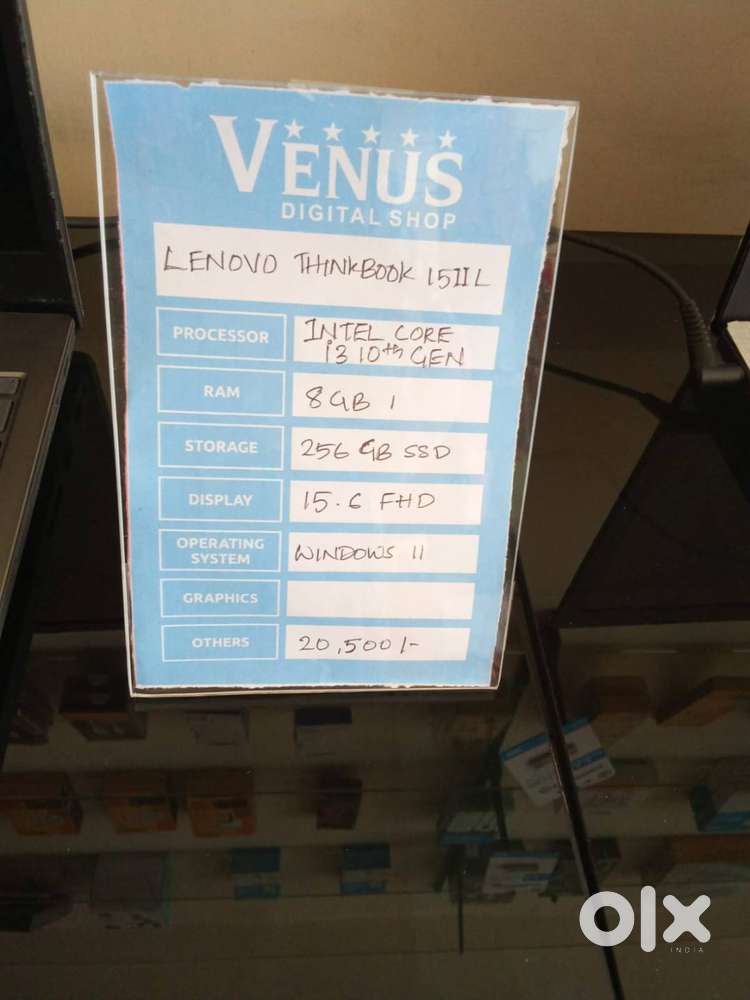 VENUS
DIGITAL SHOP
LENOVO THINKBOOK 15IIL
PROCESSOR
INTEL CORE
i3 10th GEN
RAM
8GB 1
STORAGE
256 GB SSD
DISPLAY
15.6 FHD
OPERATING
SYSTEM
WINDOWS 11
GRAPHICS
OTHERS
20,500/-
olx
INDIA